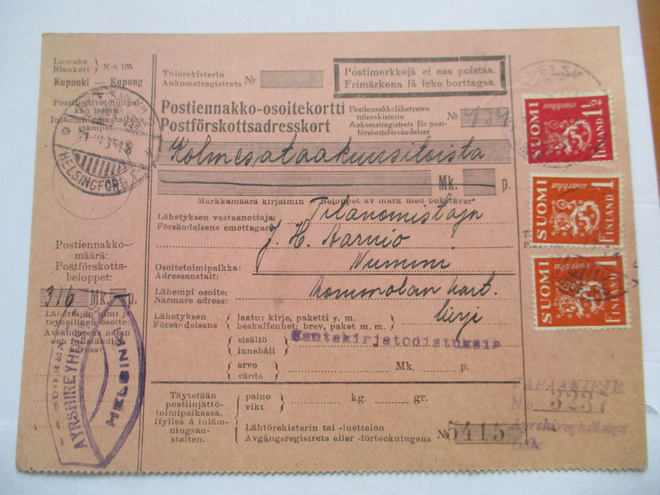 Lomake Blankett N:o 135.
Kuponki — Kupong
Postiinjättötoimipai-
kan leima:
HELSINGFORS
Postiennakko-
määrä:
Postförskotts-
beloppet:
316 Mk. p.
Lähettäjän nimi ja
täydellinen osoite:
Avsändarens namn
och fullständiga
AYRSHIREYH
HELSINKI
Tulorekisterin
Ankomstregistrets №
Postimerkkejä ei saa poistaa.
Frimärkena få icke borttagas.
Postiennakko-osoitekortti
Postförskottsadresskort
Postennakkolähetysten
tulorekisterin
Ankomstregistrets för post-
förskottsförsändelser
№ 739
Kolmesataakuusitoista
Mk. — p.
Markkamäärä kirjaimin Beloppet av mark med bokstäver
Lähetyksen vastaanottaja:
Försändelsens emottagare:
Tilanomistaja
J. H. Aarnio
Osoitetoimipaikka:
Adressanstalt:
Nummi
Lähempi osoite:
Närmare adress:
Lommolan kart.
Lähetyksen
Försändelsens
laatu: kirje, paketti y. m.
beskaffenhet: brev, paket m. m.
kirje
sisältö
innehåll
Kantakirjatodistuksia
arvo
värde
Mk. p.
Täytetään
postiinjättö-
toimipaikassa.
Ifylles å inläm-
ningsan-
stalten.
paino
vikt
kg. gr.
Lähtörekisterin tai -luettelon
Avgångsregistrets eller -förteckningens
№ 5415
SUOMI
markkaa
FINLAND
1½
SUOMI
markka
FINLAND
1
SUOMI
markka
FINLAND
1
No 3237